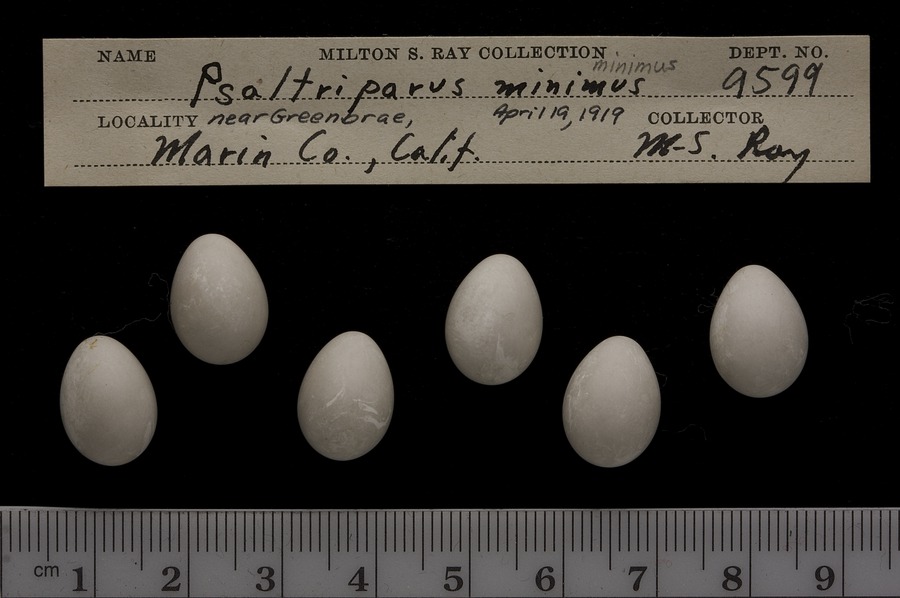 NAME MILTON S. RAY COLLECTION DEPT. NO.
minimus
Psaltriparus minimus 9599
LOCALITY near Greenbrae, April 19, 1919 COLLECTOR
Marin Co., Calif. M-S. Ray
cm 1 2 3 4 5 6 7 8 9